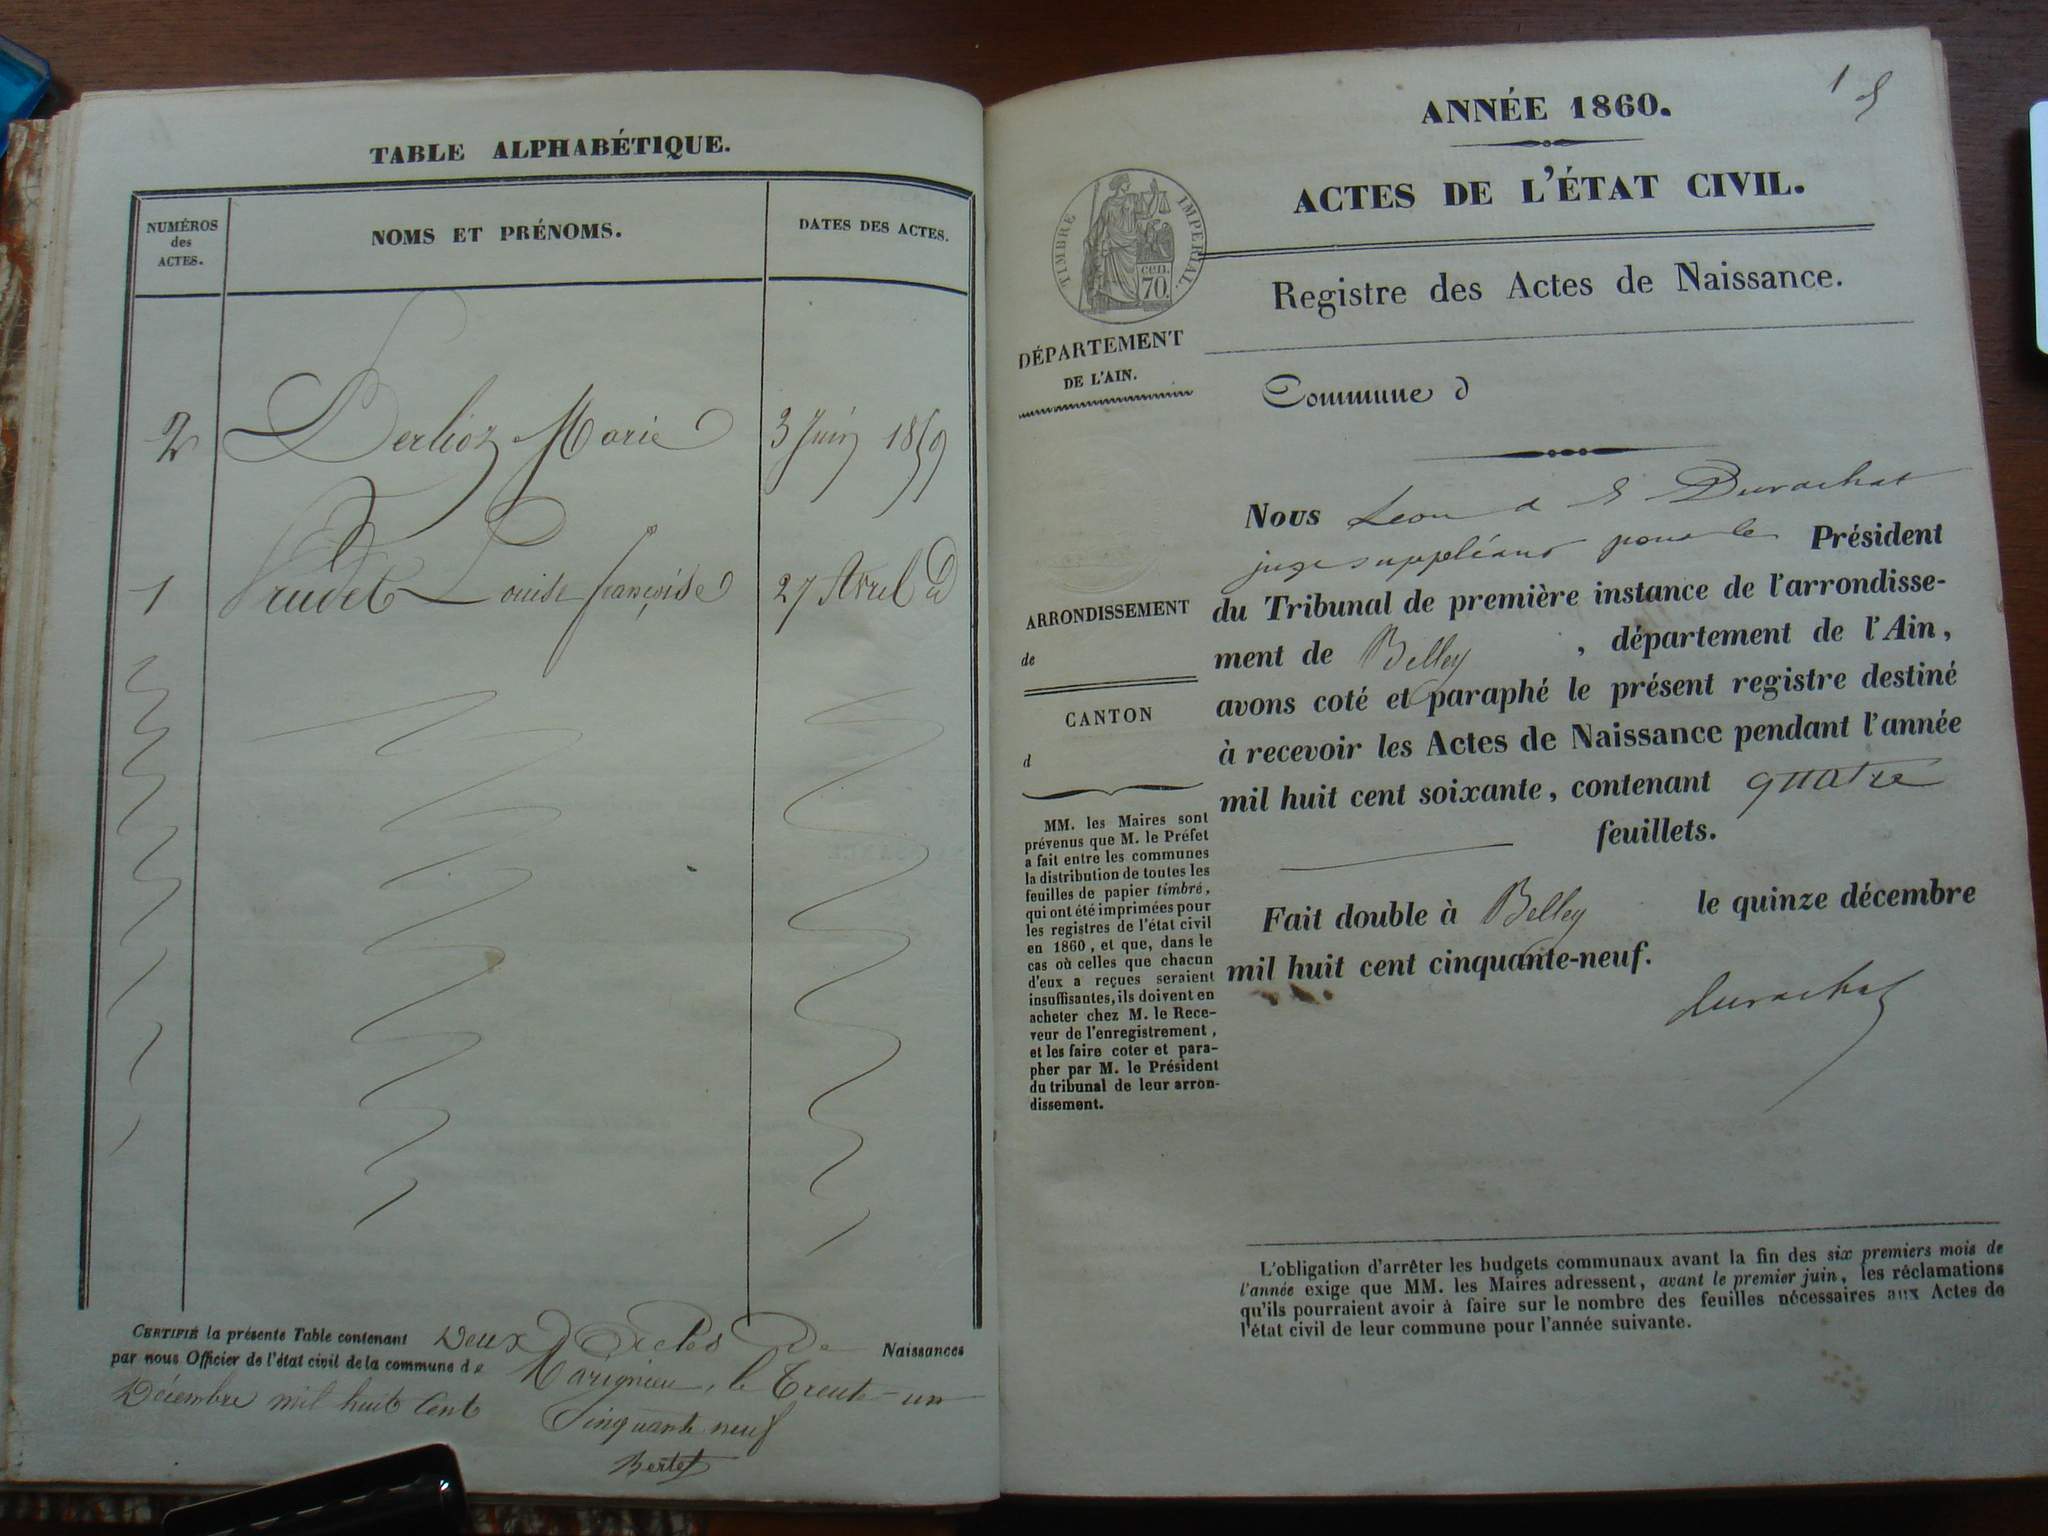 TABLE ALPHABÉTIQUE.
NUMÉROS
des
ACTES.
NOMS ET PRÉNOMS.
DATES DES ACTES.
2 Berlioz Marie 3 Juin 1859
1 Prudet Louise françoise 27 Avril d
CERTIFIÉ la présente Table contenant Deux Actes De Naissances
par nous Officier de l'état civil de la commune de Marignieu, le Trente-un
Décembre mil huit Cent Cinquante neuf
Bertet
1
ANNÉE 1860.
ACTES DE L'ÉTAT CIVIL.
TIMBRE IMPÉRIAL.
cen.
70.
Registre des Actes de Naissance.
DÉPARTEMENT
DE L'AIN.
Commune d
ARRONDISSEMENT
de
CANTON
d
MM. les Maires sont
prévenus que M. le Préfet
a fait entre les communes
la distribution de toutes les
feuilles de papier timbré,
qui ont été imprimées pour
les registres de l'état civil
en 1860, et que, dans le
cas où celles que chacun
d'eux a reçues seraient
insuffisantes, ils doivent en
acheter chez M. le Rece-
veur de l'enregistrement,
et les faire coter et para-
pher par M. le Président
du tribunal de leur arron-
dissement.
Nous Leon Durachat
juge suppléant pour le Président
du Tribunal de première instance de l'arrondisse-
ment de Belley, département de l'Ain,
avons coté et paraphé le présent registre destiné
à recevoir les Actes de Naissance pendant l'année
mil huit cent soixante, contenant quatre
feuillets.
Fait double à Belley le quinze décembre
mil huit cent cinquante-neuf.
durachat
L'obligation d'arrêter les budgets communaux avant la fin des six premiers mois de
l'année exige que MM. les Maires adressent, avant le premier juin, les réclamations
qu'ils pourraient avoir à faire sur le nombre des feuilles nécessaires aux Actes de
l'état civil de leur commune pour l'année suivante.